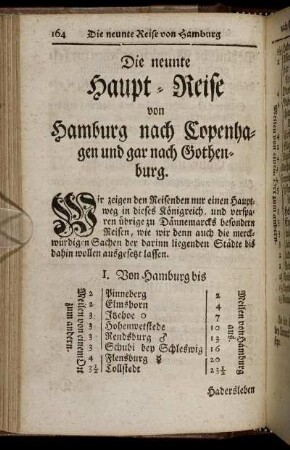 164 Die neunte Reise von Hamburg
Die neunte
Haupt-Reise
von
Hamburg nach Copenha-
gen und gar nach Gothen-
burg.
Wir zeigen den Reisenden nur einen Haupt-
weg in dieses Königreich, und verspa-
ren übrige zu Dännemarcks besondern
Reisen, wie wir denn auch die merck-
würdigen Sachen der darinn liegenden Städte bis
dahin wollen ausgesetzt lassen.
1. Von Hamburg bis
Meilen von einem Ort
zum andern.
2 Pinneberg 2
2 Elmshorn 4
3 Itzehoe ☉ 7
3 Hohenwestede 10
3 Rendsburg ♂ 13
3 Schubi bey Schleswig 16
4 Flensburg ☿ 20
3½ Tollstedt 23½
Meilen von Hamburg
aus.
Hadersleben